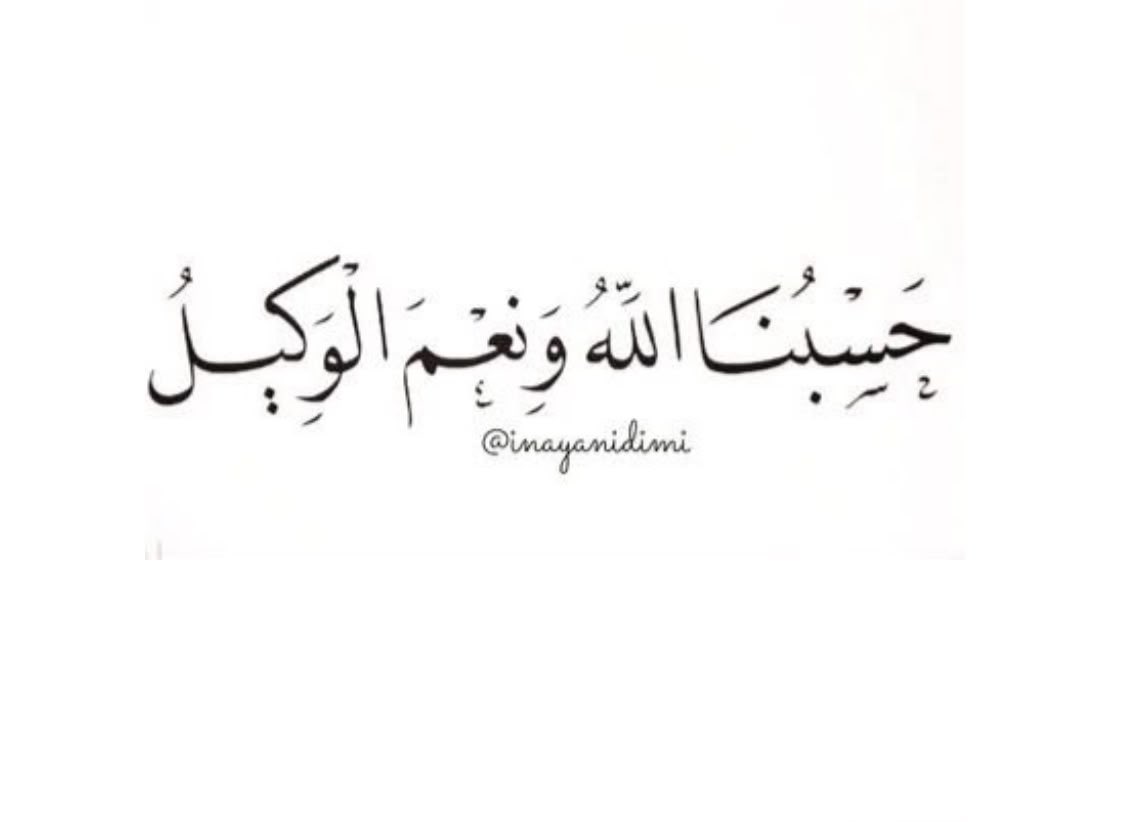 حَسْبُنَا اللَّهُ وَنِعْمَ الْوَكِيلُ
@inayanidimi